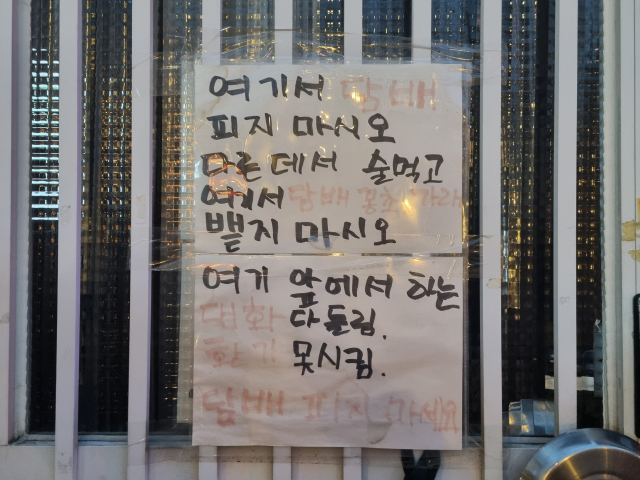 여기서 담배
피지 마시오
다른데서 술먹고
여기서 담배 꽁초 가래
뱉지 마시오
여기 앞에서 하는
대화 다 들림.
환기 못시킴.
담배 피지 마세요